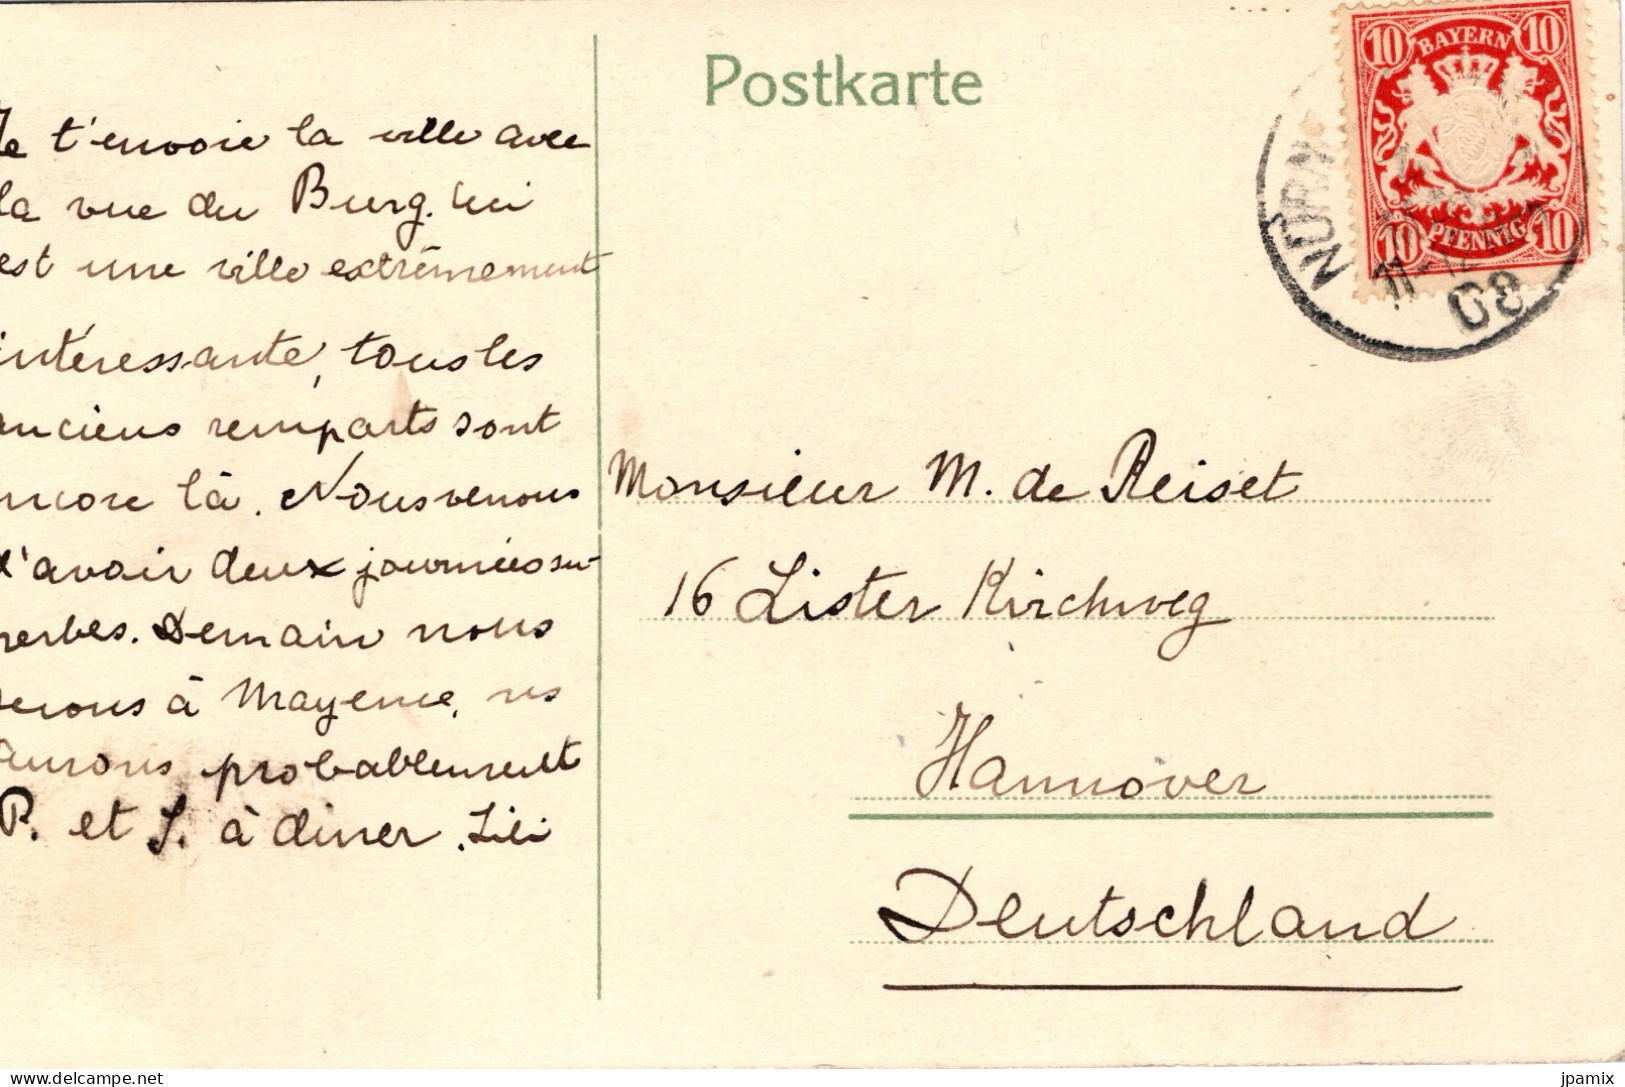 Postkarte
BAYERN
10 10
10 PFENNIG 10
NÜRN
08
Je t'envoie la ville avec
la vue du Burg.
est une ville extrêmement
intéressante, tous les
anciens remparts sont
encore là. Nous venons
d'avoir deux journées su-
perbes. Demain nous
serons à Mayence, ns
aurons probablement
P. et J. à diner. Lili
Monsieur M. de Reiset
16 Lister Kirchweg
Hannover
Deutschland
jpamix